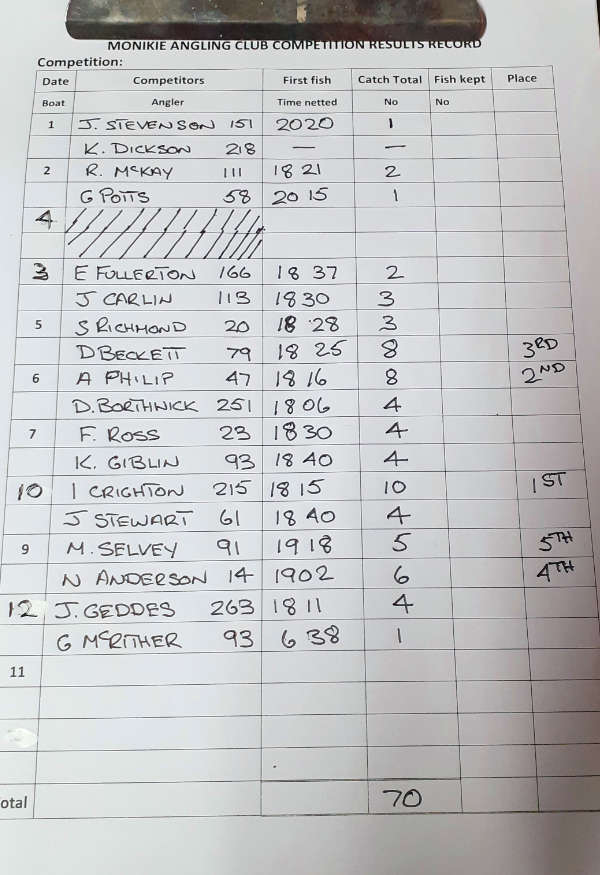 MONIKIE ANGLING CLUB COMPETITION RESULTS RECORD
Competition:
Date Competitors First fish Catch Total Fish kept Place
Boat Angler Time netted No No
1 J. STEVENSON 151 2020 1
K. DICKSON 218 — —
2 R. McKAY 111 18 21 2
G POTTS 58 20 15 1
4
3 E FULLERTON 166 18 37 2
J CARLIN 113 1830 3
5 S RICHMOND 20 18 28 3
D BECKETT 79 18 25 8 3RD
6 A PHILIP 47 18 16 8 2ND
D. BORTHWICK 251 1806 4
7 F. ROSS 23 1830 4
K. GIBLIN 93 18 40 4
10 I CRIGHTON 215 18 15 10 1ST
J STEWART 61 18 40 4
9 M. SELVEY 91 19 18 5 5TH
N ANDERSON 14 1902 6 4TH
12 J. GEDDES 263 18 11 4
G 93 6 38 1
11
otal 70